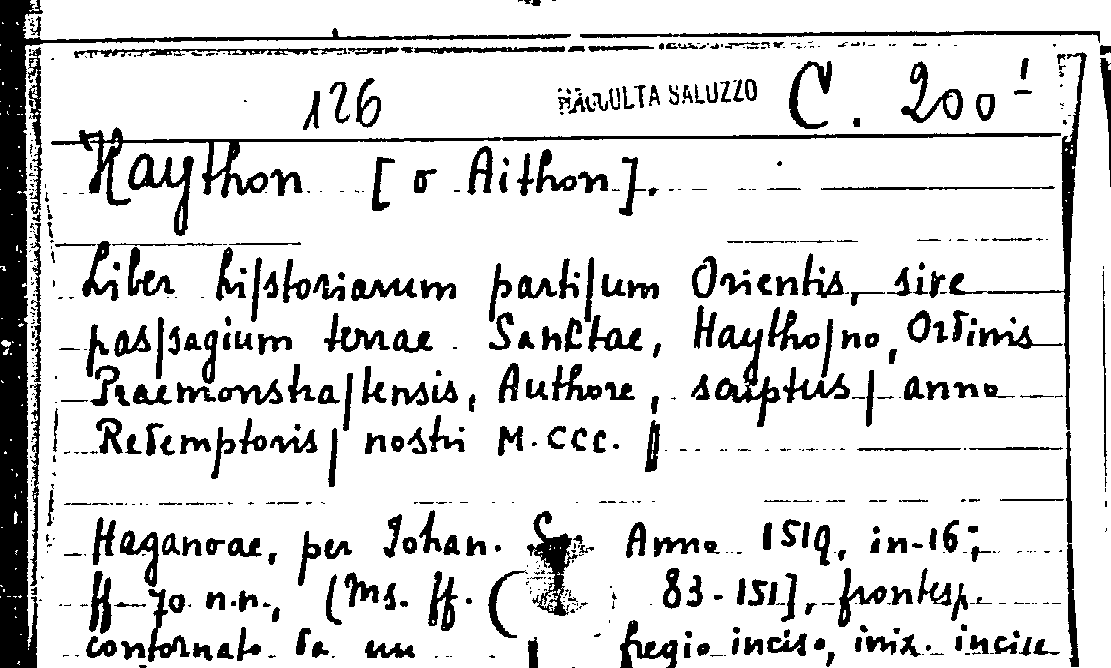 126 RACCOLTA SALUZZO C. 200¹
Haython [o Aithon].
Liber hi|storiarum parti|um Orientis, sive
pas|sagium terrae Sanctae, Haytho|no, Ordinis
Praemonstra|tensis, Authore, scriptus| anno
Redemptoris| nostri M.CCC. ‖
Haganoae, per Johan. Anno 1519, in-16°;
ff 70 n.n., [Ms. ff. ( 83-151], frontesp.
contornato da un fregio inciso, iniz. incise